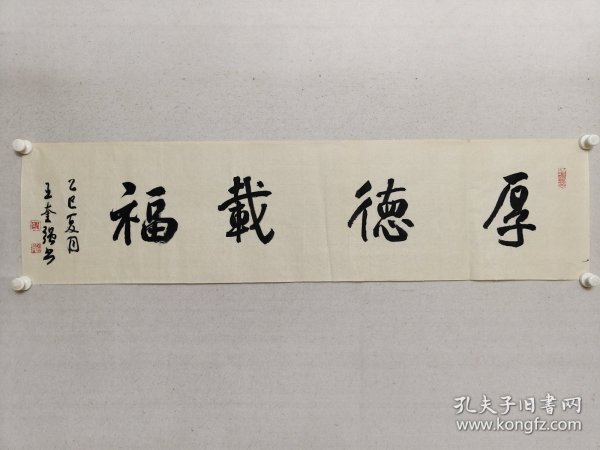 厚德載福
乙巳夏月
王奎强书
孔夫子旧書网
www.kongfz.com